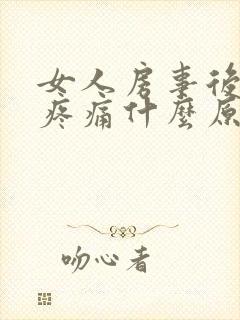 女人房事後
疼痛什麼原
吻心者